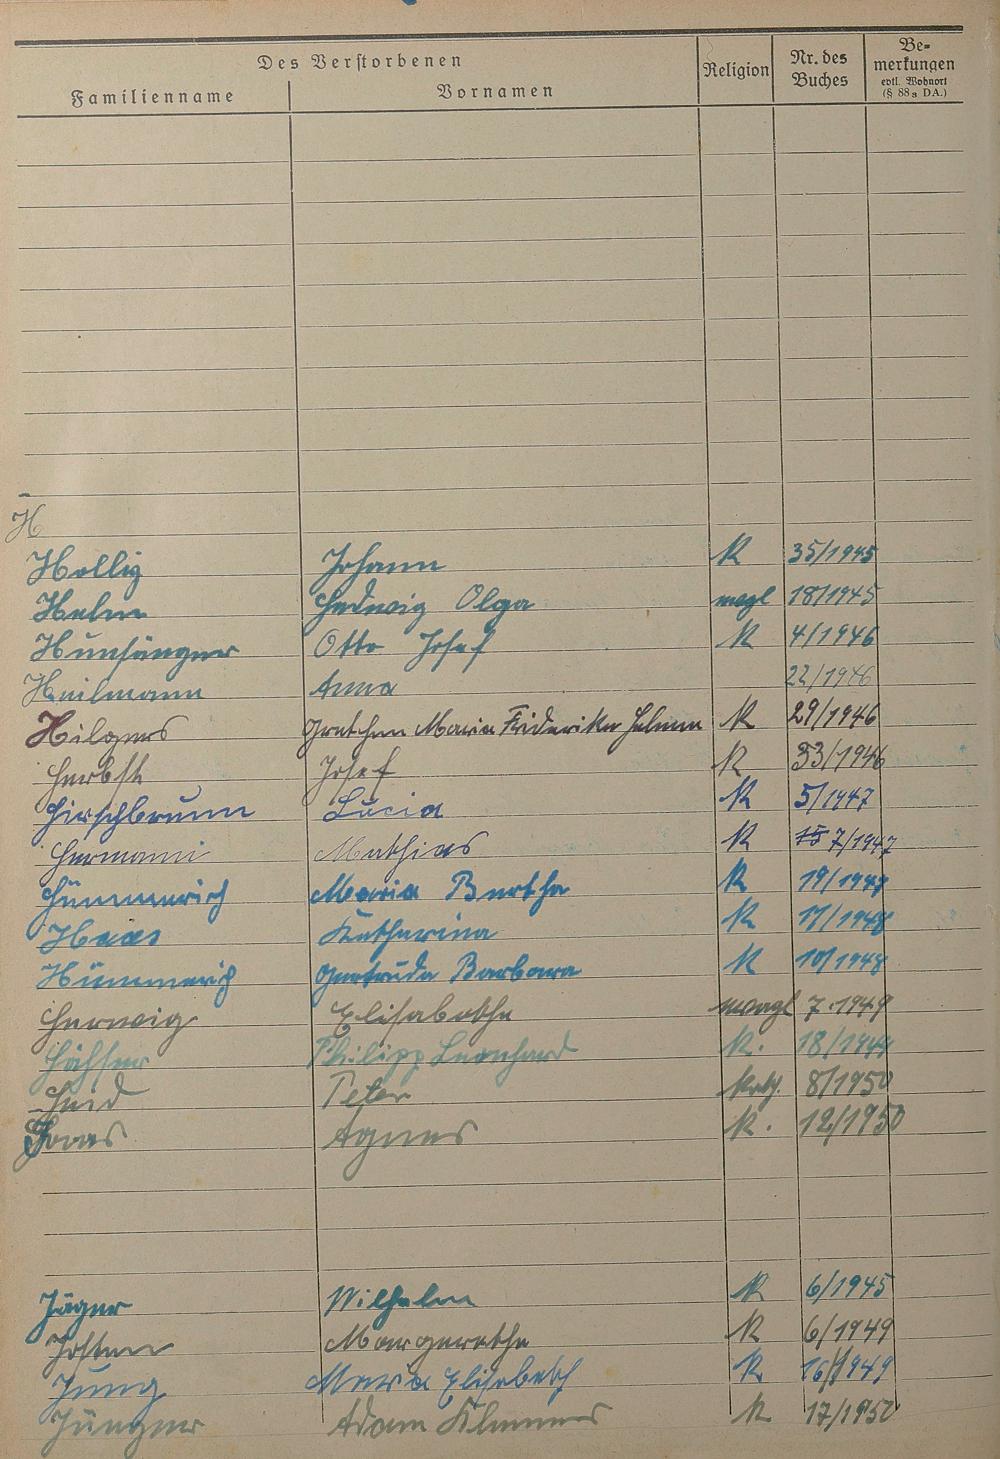 Des Verstorbenen
Familienname Vornamen Religion Nr. des Buches Bemerkungen evtl. Wohnort (§ 88a DA.)
H
Hollig Johann K 35/1945
Helm Hedwig Olga evgl 18/1945
Hunsänger Otto Josef K 4/1946
Heilmann Anna 22/1946
Hilgers Gretchen Maria Friderike Helene K 29/1946
Herbst Josef K 33/1946
Hirschbrunn Lucia K 5/1947
Hermani Mathias K 7/1947
Hümmerich Maria Bertha K 19/1947
Haas Katharina K 17/1948
Hümmerich Gertruda Barbara K 10/1948
Herwig Elisabethe evagl 7.1949
Philipp Leonhard K. 18/1949
Heid Peter kath. 8/1950
Haas Agnes K. 12/1950
Jäger Wilhelm K 6/1945
Josten Margarethe K 6/1949
Jung Maria Elisabeth K 16/1949
Jüngner Adam Klemens K 17/1950